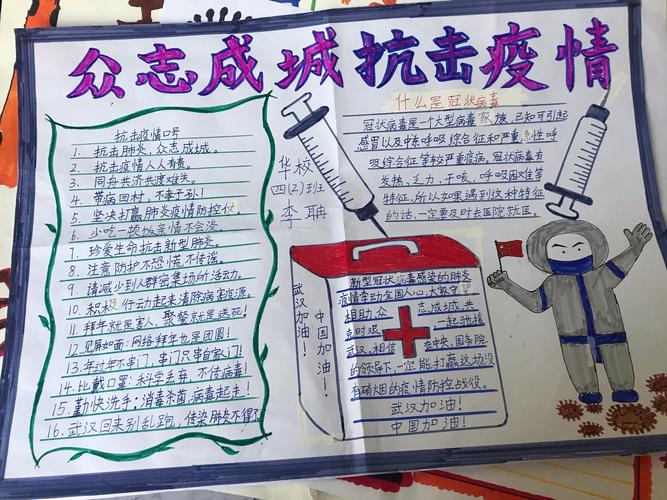 众志成城抗击疫情
抗击疫情口号
1. 抗击肺炎，众志成城。
2. 抗击疫情人人有责。
3. 同舟共济共渡难关。
4. 带病回村，不孝子孙！
5. 坚决打赢肺炎疫情防控仗
6. 少吃一顿饭亲情不会淡
7. 珍爱生命抗击新型肺炎
8. 注意防护不恐慌不传谣。
9. 请减少到人群密集场所活动。
10. 积极行动起来清除病害疫源。
11. 拜年就是害人，聚餐就是送死！
12. 见屏如面：网络拜年也是团圆！
13. 年过年不串门，串门只串自家门！
14. 比戴口罩：科学丢弃，不传病毒！
15. 勤快洗手：消毒杀菌，病毒赶走！
16. 武汉回来别乱跑，传染肺炎不得了
华校
四(2)班
李聃
什么是冠状病毒
冠状病毒是一个大型病毒家族，已知可引起
感冒以及中东呼吸综合征和严重急性呼
吸综合征等较严重疾病，冠状病毒有
发热、乏力、干咳、呼吸困难等
特征，所以如果遇到这种特征
的话，一定要及时去医院就医。
武汉加油！
中国加油！
新型冠状病毒感染的肺炎
疫情牵动全国人心，大家守望
相助，众志成城，共
克时艰，一起驰援
武汉，相信在中央、国务院
的领导下，一定能打赢这场没
有硝烟的疫情防控战役。
武汉加油！
中国加油！